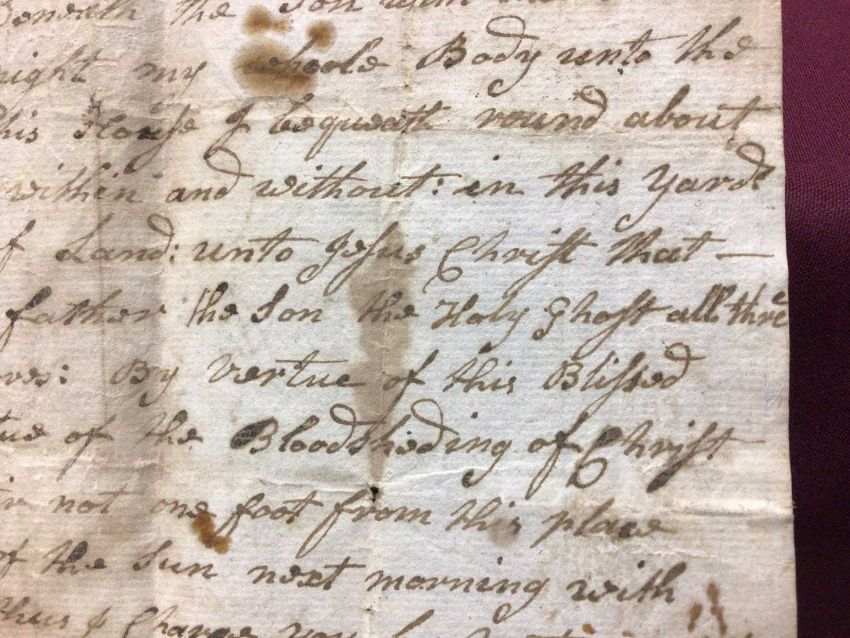 Beneath the Son with
night my whoole Body unto the
This House I bequeath round about
within and without: in this Yard
f Land: unto Jesus Christ that —
father the Son the Holy Ghost all three
ves: By vertue of this Blissed
tue of the Bloodsheding of Christ
ir not one foot from this place
of the Sun next morning with
thus I Charge you